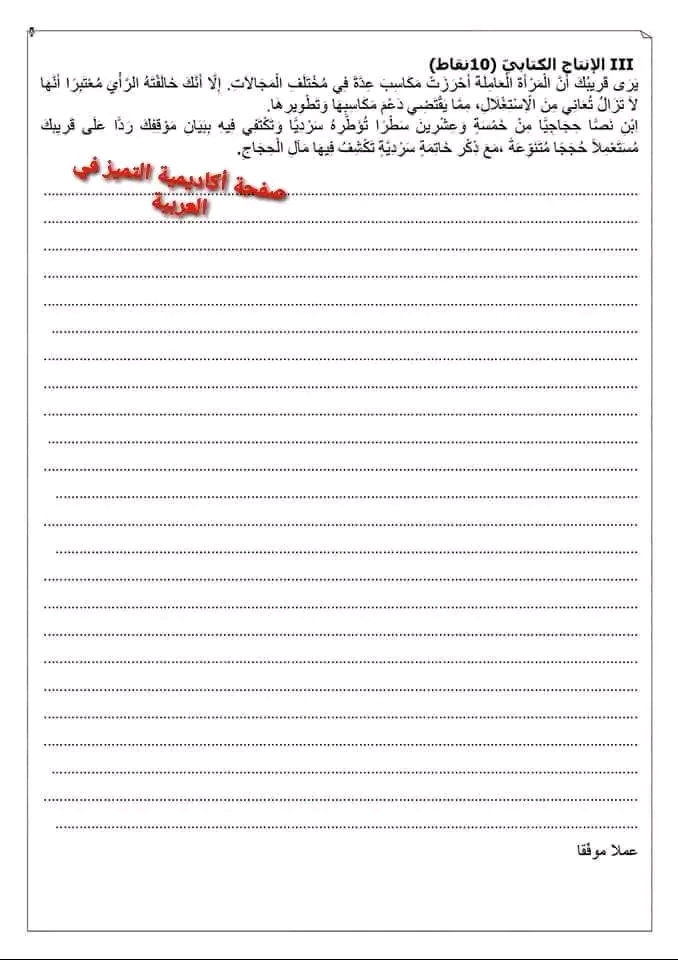 III الإنتاج الكتابيّ (10نقاط)
يَرَى قَرِيبُكَ أَنَّ الْمَرْأَةَ الْعَامِلَةَ أَحْرَزَتْ مَكَاسِبَ عِدَّةً فِي مُخْتَلَفِ الْمَجَالَاتِ. إِلَّا أَنَّكَ خَالَفْتَهُ الرَّأْيَ مُعْتَبِرًا أَنَّها
لَا تَزَالُ تُعَانِي مِنَ الْاِسْتِغْلَالِ، مِمَّا يَقْتَضِي دَعْمَ مَكَاسِبِهَا وَتَطْوِيرِهَا.
اِبْنِ نَصًّا حِجَاجِيًّا مِنْ خَمْسَةٍ وَعِشْرِينَ سَطْرًا تُؤَطِّرهُ سَرْدِيًّا وَتَكْتَفِي فيهِ بِبَيَانِ مَوْقِفِكَ رَدًّا عَلَى قَرِيبِكَ
مُسْتَعْمِلاً حُجَجًا مُتَنَوِّعَةً ،مَعَ ذِكْرِ خَاتِمَةٍ سَرْدِيَّةٍ تَكْشِفُ فِيهَا مَآلَ الْحِجَاجِ.
صفحة أكاديمية التميز في
العربية
عملا موفّقا